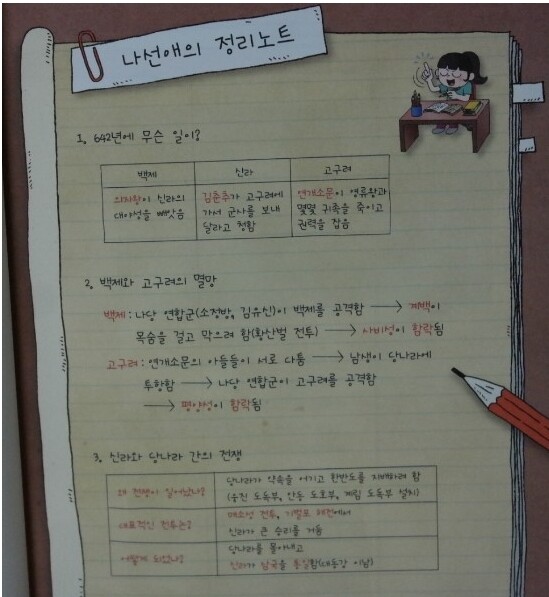 나선애의 정리노트
1. 642년에 무슨 일이?
백제 신라 고구려
의자왕이 신라의 김춘추가 고구려에 연개소문이 영류왕과
대야성을 빼앗음 가서 군사를 보내 몇몇 귀족을 죽이고
달라고 청함 권력을 잡음
2. 백제와 고구려의 멸망
백제 : 나당 연합군(소정방, 김유신)이 백제를 공격함 → 계백이
목숨을 걸고 막으려 함(황산벌 전투) → 사비성이 함락됨
고구려 : 연개소문의 아들들이 서로 다툼 → 남생이 당나라에
투항함 → 나당 연합군이 고구려를 공격함
→ 평양성이 함락됨
3. 신라와 당나라 간의 전쟁
왜 전쟁이 일어났나? 당나라가 약속을 어기고 한반도를 지배하려 함
(웅진 도독부, 안동 도호부, 계림 도독부 설치)
대표적인 전투는? 매소성 전투, 기벌포 해전에서
신라가 큰 승리를 거둠
어떻게 되었나? 당나라를 몰아내고
신라가 삼국을 통일함(대동강 이남)